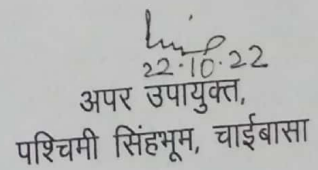 22.10.22
अपर उपायुक्त,
पश्चिमी सिंहभूम, चाईबासा